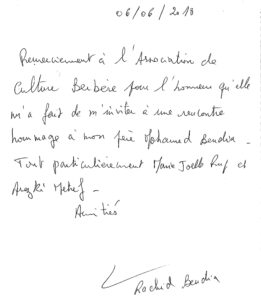 06/06/2018
Remerciement à l'Association de
Culture Berbère pour l'honneur qu'elle
m'a fait de m'inviter à une rencontre
hommage à mon père Mohamed Bendia.
Tout particulièrement Marie Joelle et
Arezki Metref.
Amitiés
Rachid Bendia